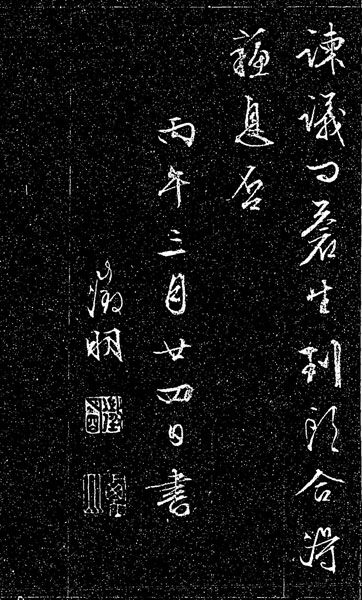 諫議問蒼生到頭合得
蘇息否
丙午三月廿四日書
徵明